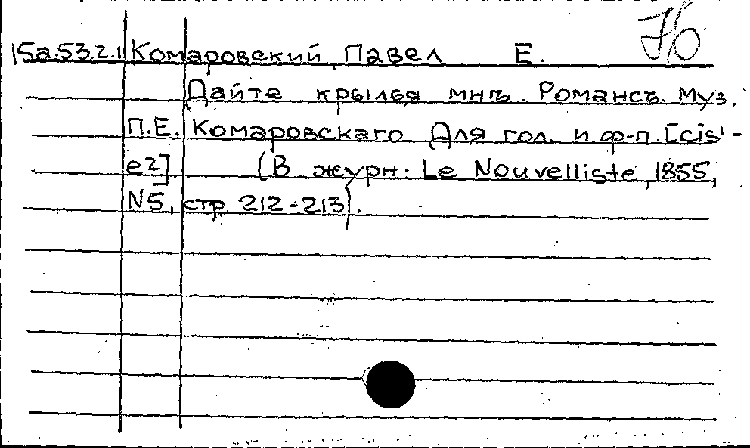 15a.53.2.11 Комаровский, Павел Е.
Дайте крылья мнѣ. Романсъ. Муз.
П.Е. Комаровскаго Для гол. и ф-п. [cis¹-
e²] (В журн: Le Nouvelliste, 1855,
N5, стр 212-213).